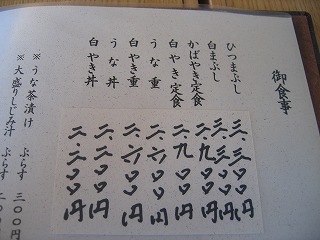 御食事
ひつまぶし 三.三〇〇円
白まぶし 三.三〇〇円
かばやき定食 二.九〇〇円
白やき定食 二.九〇〇円
うな重 二.六〇〇円
白やき重 二.六〇〇円
うな丼 二.二〇〇円
白やき丼 二.二〇〇円
※うな茶漬け ぷらす 三〇〇円
※大盛りしじみ汁 ぷらす